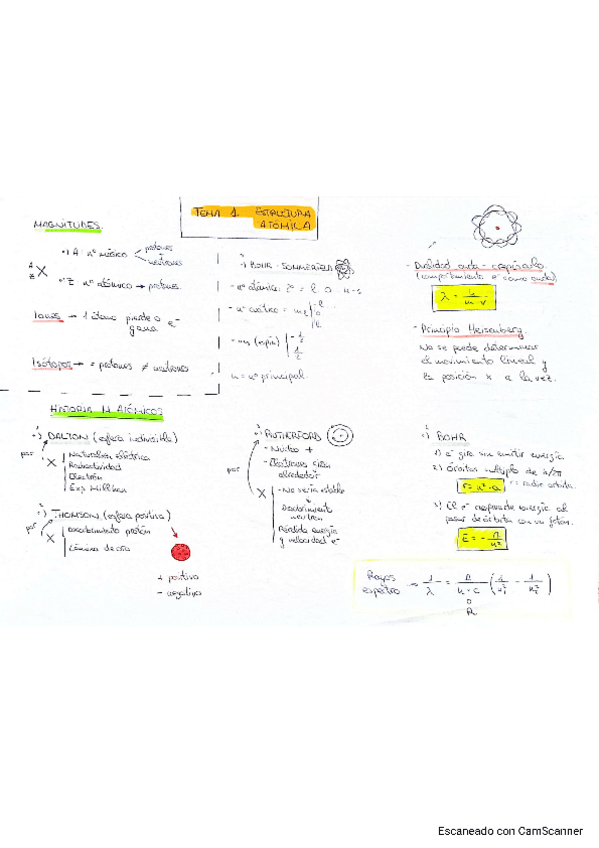 TEMA 1. ESTRUCTURA
ATÓMICA
MAGNITUDES.
A nº másico
protones
neutrones
A
Z
X
Z nº atómico → protones
Iones → 1 átomo pierde o e-
gana
Isótopos → = protones ≠ neutrones
BOHR - SOMMERFELD
- nº principal.
- Dualidad onda-corpúsculo
(comportamiento e- como onda).
λ = h / m·v
- Principio Heisenberg.
No se puede determinar
el movimiento lineal y
la posición x a la vez.
HISTORIA M. ATÓMICOS
DALTON (esfera indivisible)
por
X
Naturaleza eléctrica
Radiactividad
Electrón
Exp. Millikan
THOMSON (esfera positiva)
por
X
Descubrimiento protón
Lámina de oro
+ positivo
- negativo
RUTHERFORD
- Núcleo +
- Electrones giran
alrededor
por
X
- No sería estable
Descubrimiento
neutrón
Pérdida energía
y velocidad e-
BOHR
1) e- gira sin emitir energía.
2) Órbitas múltiplo de h/2π
r = n²·a
radio órbita.
3) El e- responde energía al
pasar de órbita con un fotón.
E = - A / n²
Rayas
espectro → 1/λ = A / h·c (1/n² - 1/n²)
R
Escaneado con CamScanner